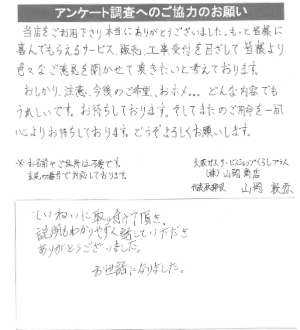 アンケート調査へのご協力のお願い
当店をご利用下さり本当にありがとうございました。もっと皆様に
喜んでもらえるサービス、販売、工事受付を目ざして皆様より
色々なご意見を聞かせて頂きたいと考えております。
おしかり、注意、今後のご希望、おホメ… どんな内容でも
うれしいです。お待ちしております。そしてまたのご用命を一同
心よりお待ちしております。どうぞよろしくお願いします。
※お名前やご住所は不要です。
(株)山岡商店
山岡
ていねいに取り付けて頂き、
説明もわかりやすく話していただき
ありがとうございました。
お世話になりました。